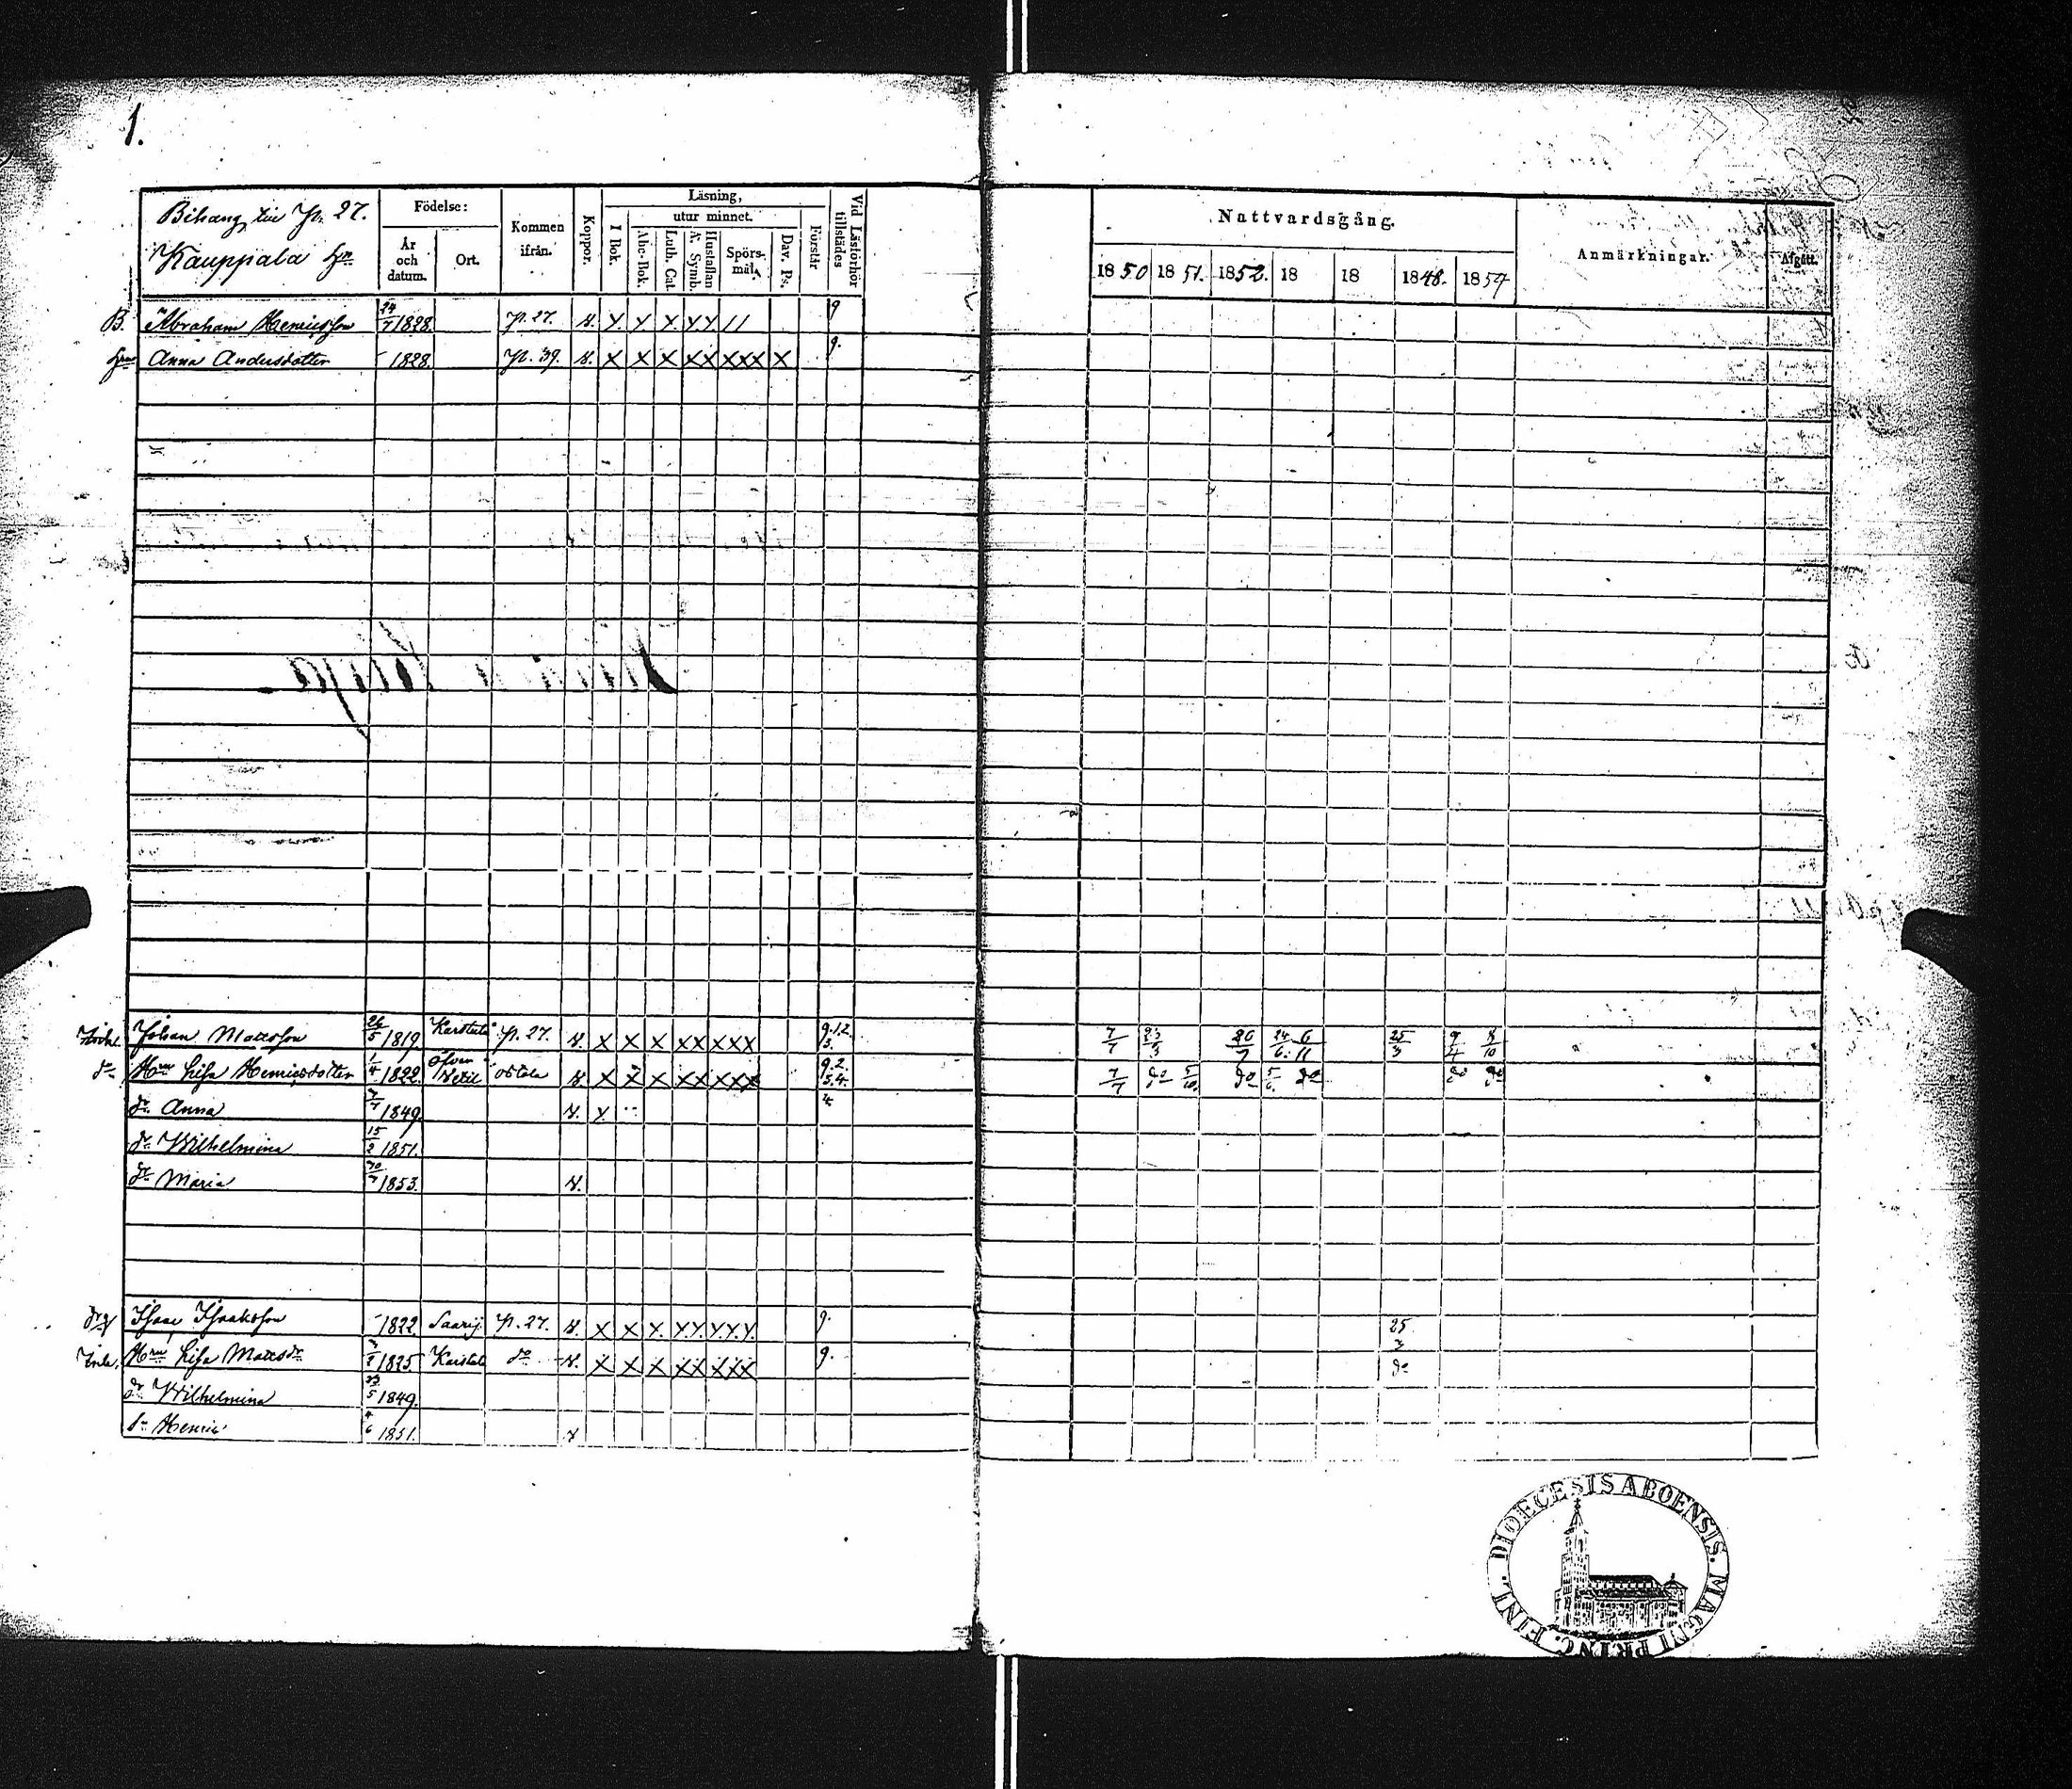 1.
Bihang till P. 27.
Kauppala Hn
Födelse:
År och datum.
Ort.
Kommen ifrån.
Koppor.
Läsning,
I Bok.
utur minnet.
Abc-Bok.
Luth. Cat.
A. Symb.
Hustaflan
Spörsmål.
Dav. Ps.
Förstår
Vid Läsförhör tillstädes
Nattvardsgång.
1850 1851. 1852. 18 18 1848. 1854
Anmärkningar.
Afgått.
B. Abraham Henricsson 24/7 1828. p. 27. v. 9
Hru Anna Andersdotter 1828. p. 39. v. X X X XX XXX X 9.
Johan Mattsson 26/5 1819 Karstula p. 27. v. X X X XX XXX 9.1.2. 3. 7/7 26/7 24/6 6/11 25/3 9/4 8/10
do Hru Lisa Henricsdotter 1/4 1822. v. X X X XX XXX 9.2. 3.4. 7/7 do 5/10 do 5/6 do do do
dr Anna 1849. v. 4
dr Wilhelmina 15/2 1851.
dr Maria 1853. v.
Isaac Isaaksson 1822. Saarij. p. 27. v. X X X 9. 25/3
Hru Lisa Mattsdr 1825. Karstula do v. X X X XX XXX 9. do
dr Wilhelmina 1849.
sn Henric 1851. v
DIOECESIS ABOENSIS. MAGNI PRINC. FINL.